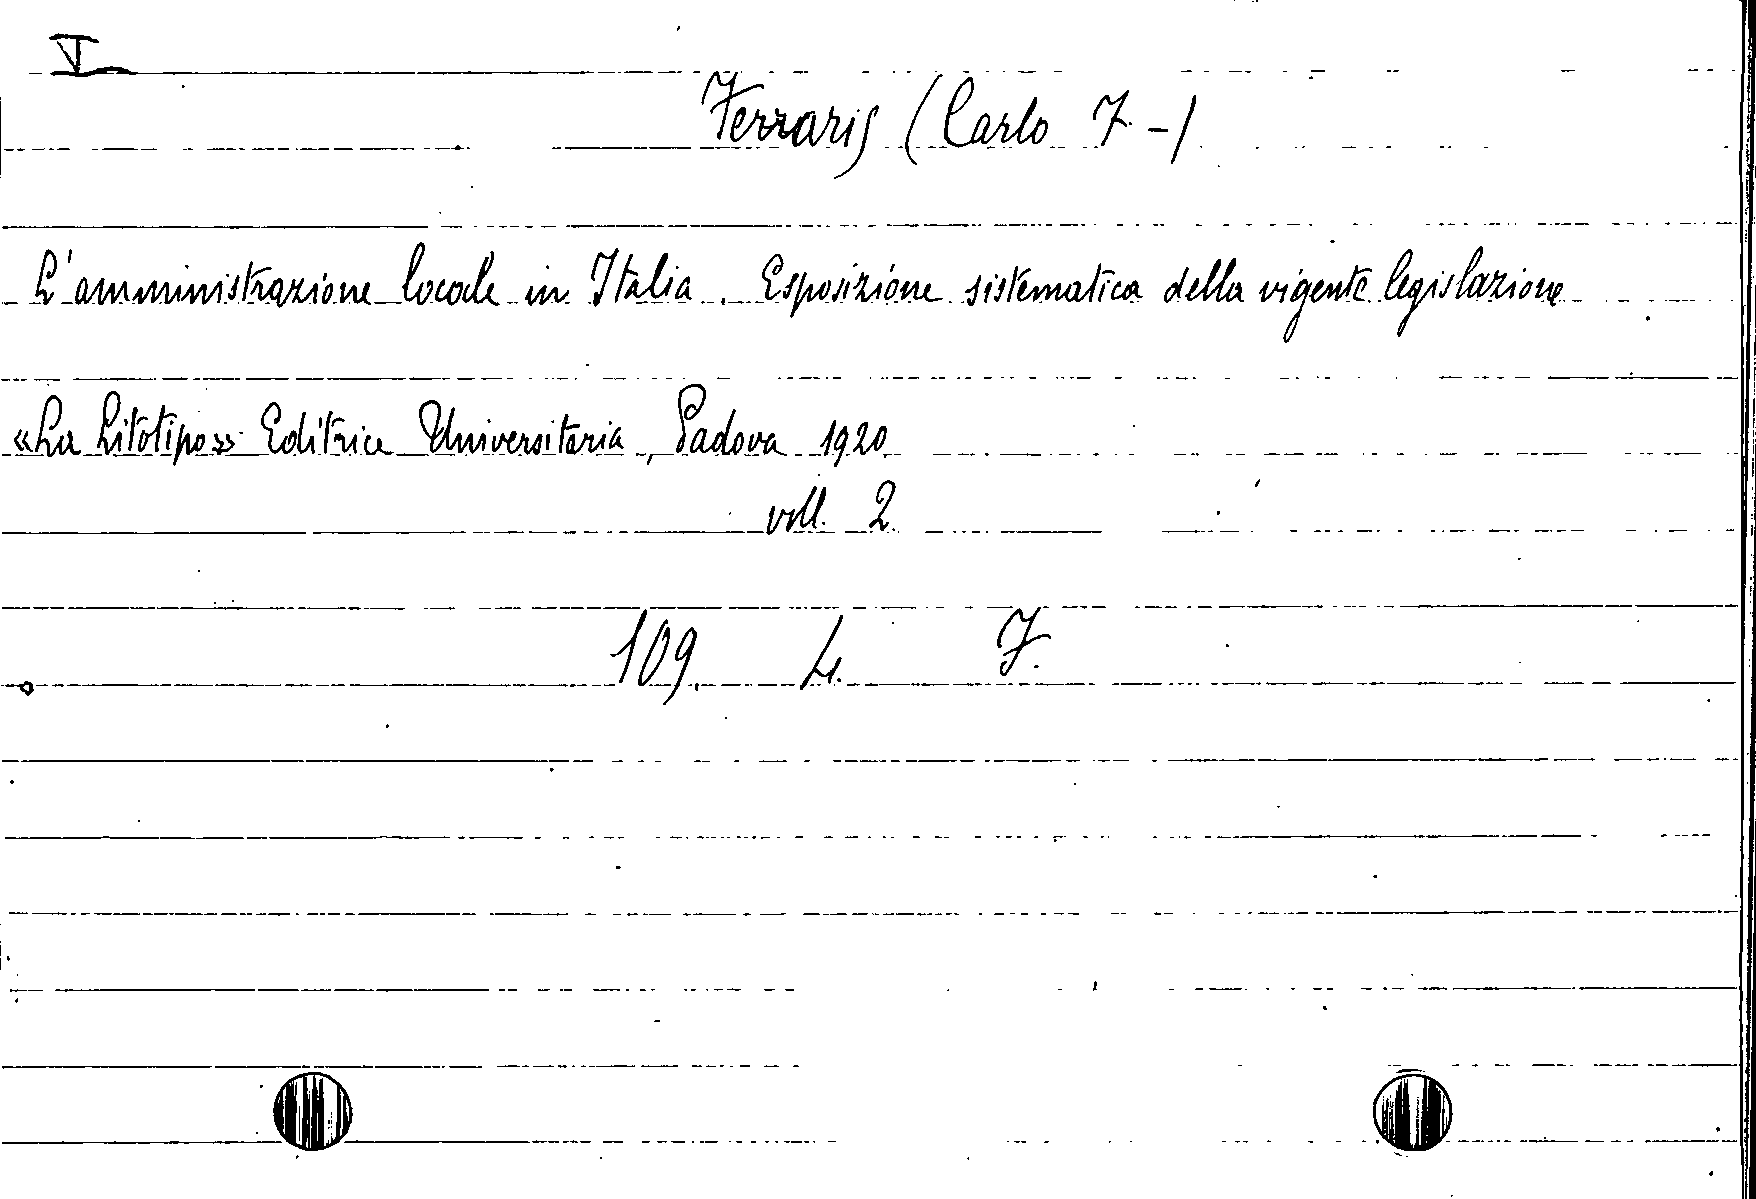 V
Ferraris (Carlo F. -)
L'amministrazione locale in Italia. Esposizione sistematica della vigente legislazione
«La Litotipo» Editrice Universitaria, Padova 1920
voll. 2
109. 4. F.